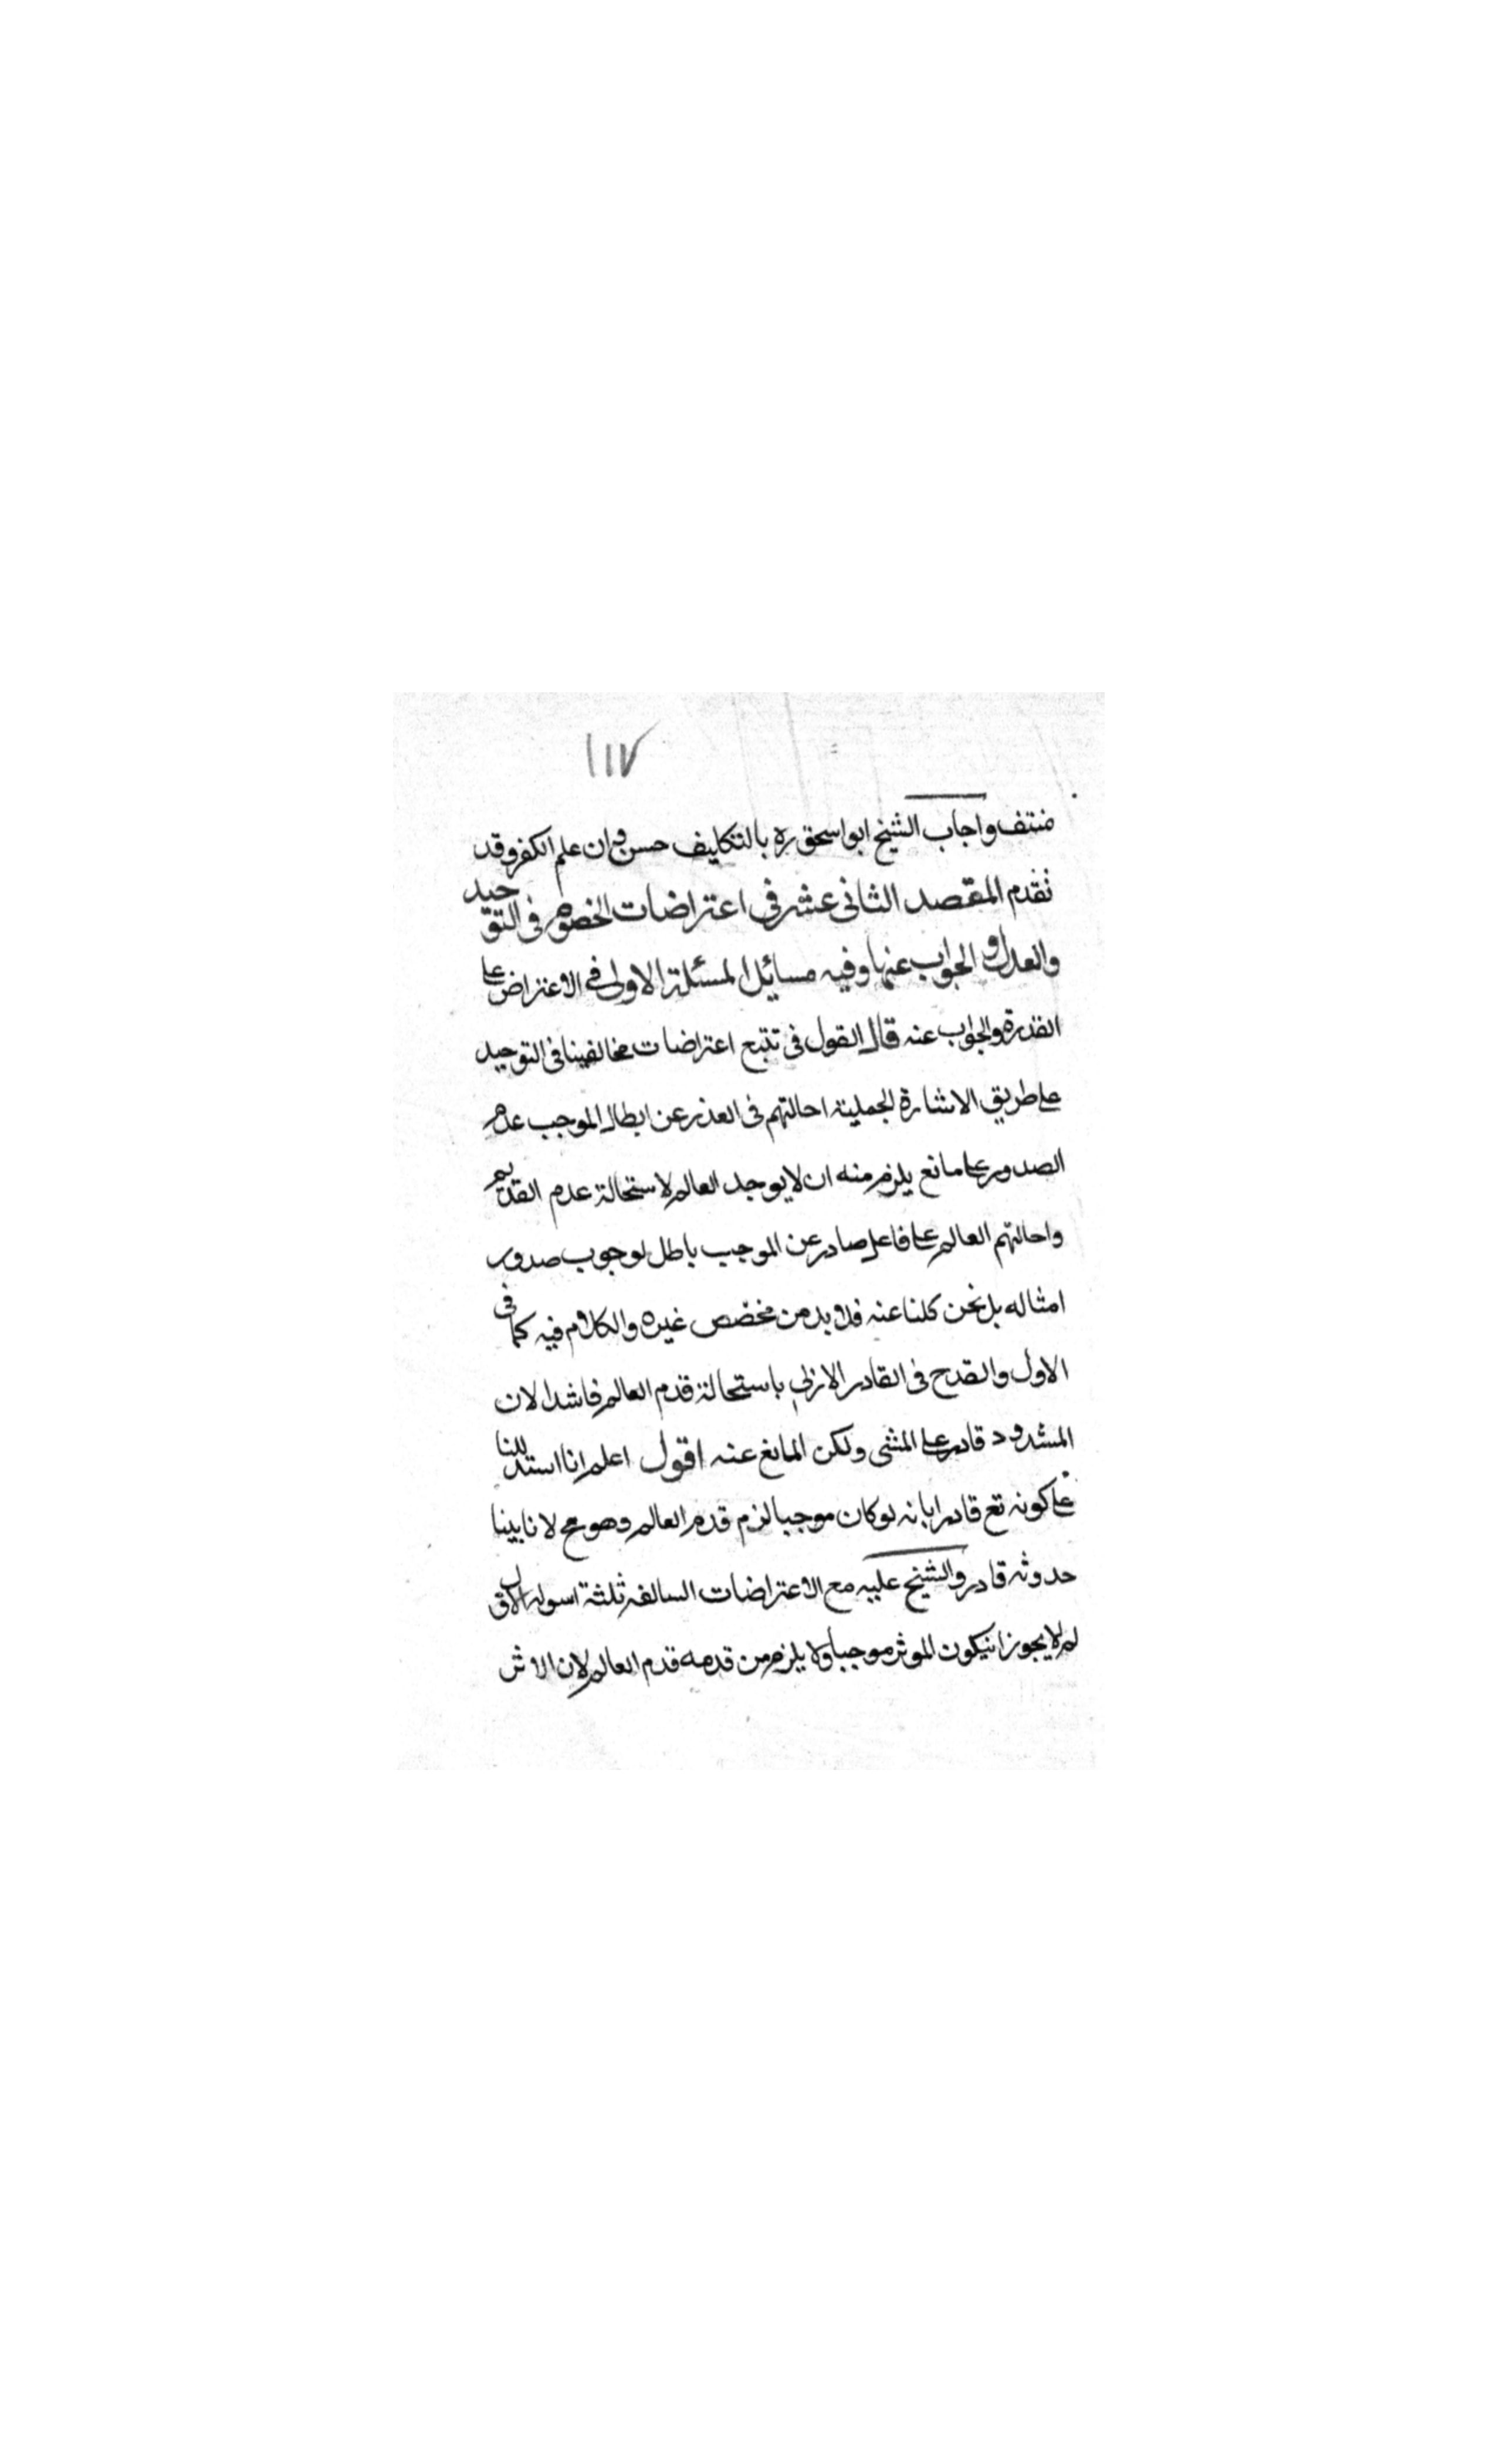 ١١٧
منتف واجاب الشيخ ابو اسحق ره بالتكليف حسن وان علم الكفر وقد
تقدم المقصد الثانى عشر فى اعتراضات الخصوم فى التوحيد
والعدل والجواب عنها وفيه مسائل المسئلة الاولى فى الاعتراض على
القدرة والجواب عنه قال القول فى تتبع اعتراضات مخالفينا فى التوحيد
على طريق الاشارة الجملية احالتهم فى العذر عن ابطال الموجب عدم
الصدور على مانع يلزم منه ان لا يوجد العالم لاستحالة عدم القديم
واحالتهم العالم على فاعل صادر عن الموجب باطل لوجوب صدور
امثاله بل نحن كلنا عنه فلا بد من مخصص غيره والكلام فيه كما فى
الاول والقدح فى القادر الازلى باستحالة قدم العالم فاشد لان
المشدود قادر على المشى ولكن المانع عنه اقول اعلم انا استدللنا
على كونه تع قادرا بانه لو كان موجبا لزم قدم العالم وهو مح لانا بينا
حدوثه قادر والشيخ عليه مع الاعتراضات السالفة ثلثة اسولة الاول
لم لا يجوز انيكون الموثر موجبا ولا يلزم من قدمه قدم العالم لان الاثر